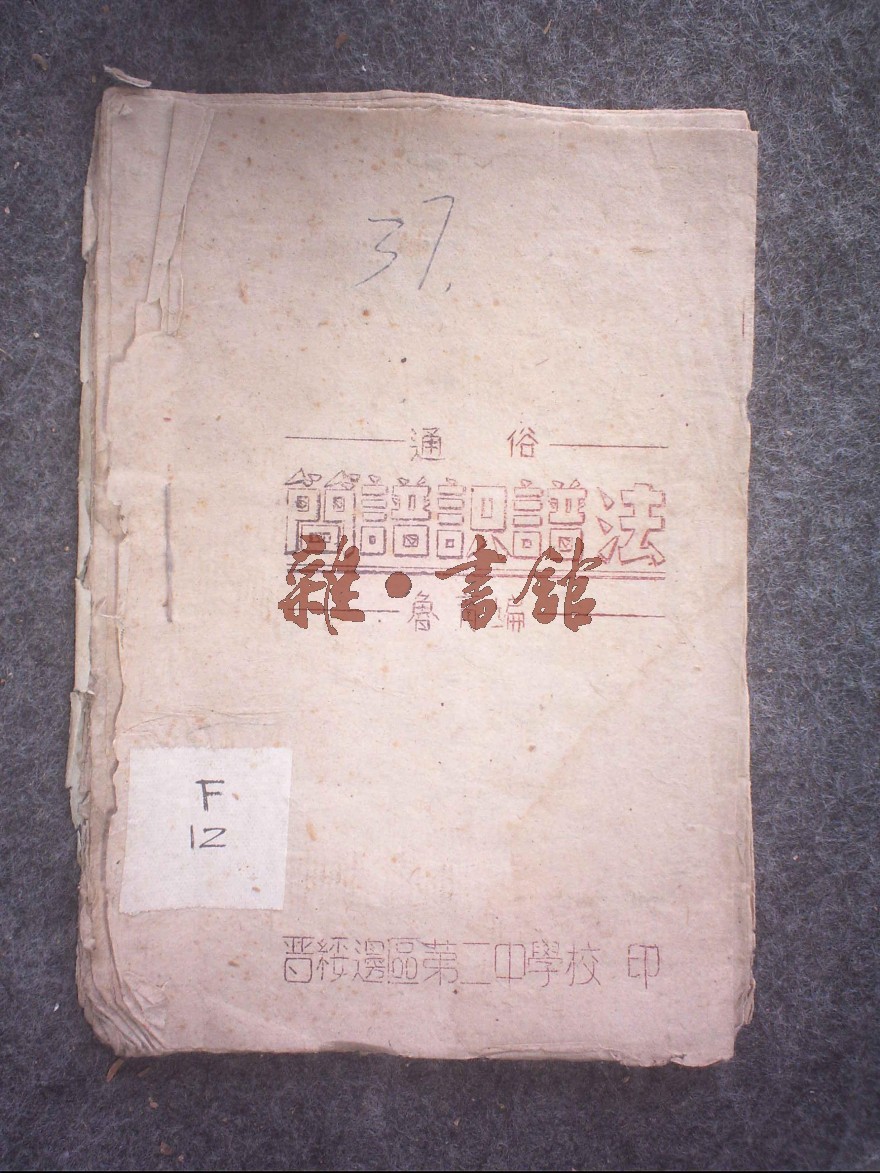 37.
通俗
簡譜識譜法
雜·書館
魯 編
F
12
晋綏邊區第二中學校 印